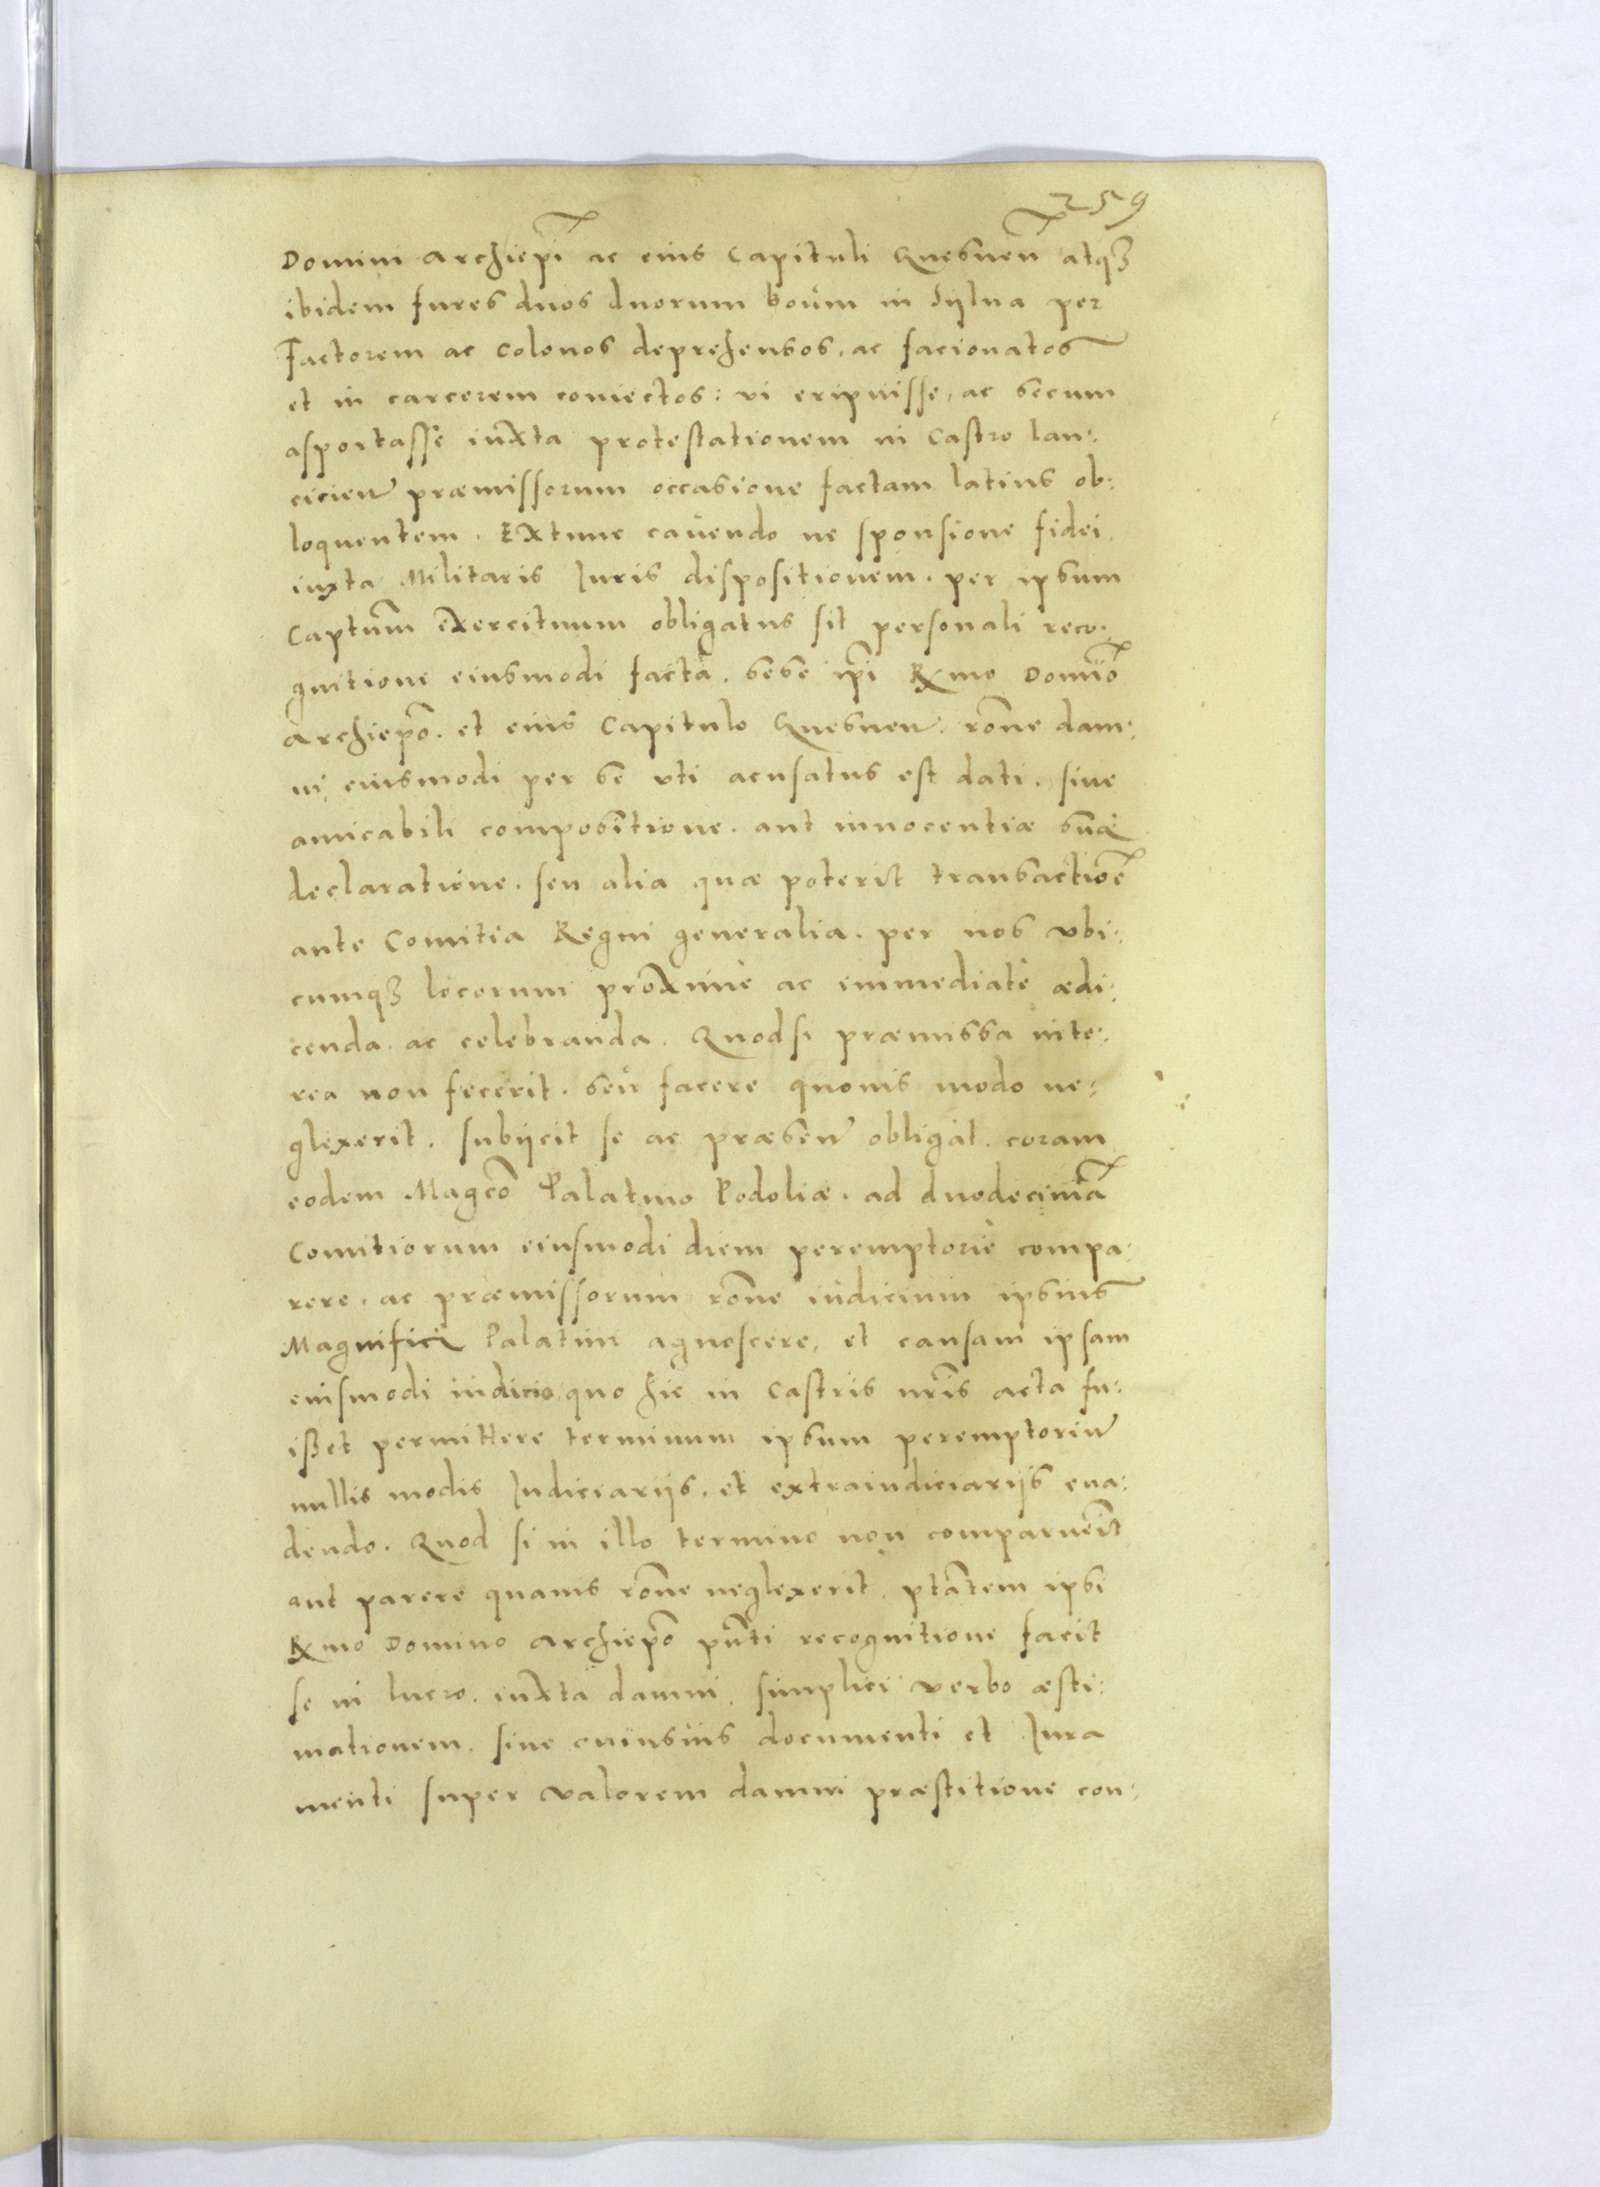 259
Domini Archiepi ac eius Capituli Gnesnen atq3
ibidem fures duos duorum boum in sylua per
Factorem ac Colonos deprehensos, ac facionatos
et in carcerem coniectos: vi eripuisse, ac secum
asportasse iuxta protestationem in Castro Lan:
cicien præmissorum occasione factam latius ob:
loquentem. Extunc cauendo ne sponsione fidei
iuxta Militaris Iuris dispositionem. per ipsum
Captum exercituum obligatus sit personali reco:
gnitione eiusmodi facta. sese ipi Rmo Domio
Archiepo. et eius Capitulo Gnesnen. rone dam:
ni eiusmodi per se vti acusatus est dati. siue
amicabili compositione. aut innocentiæ suæ
declaratione. seu alia quæ poterit transactioe
ante Comitia Regni generalia. per nos vbi:
cumq3 locorum proxime ac immediatè ædi:
cenda ac celebranda. Quodsi præmissa inte:
rea non fecerit. seu facere quouis modo ne:
glexerit. subijcit se ac præsen obligat. coram
eodem Magco Palatino Podoliæ. ad duodecima
Comitiorum eiusmodi diem peremptoriè compa:
rere. ac præmissorum rone iudicium ipsius
Magnifici Palatini agnoscere, et causam ipsam
eiusmodi iudicio quo hic in Castris nris acta fu:
isset permittere terminum ipsum peremptoriu
nullis modis Iudiciarijs. et extraiudiciarijs eua:
dendo. Quod si in illo termino non comparuerit
aut parere quauis rone neglexerit. ptatem ipsi
Rmo Domino Archiepo pnti recognitione facit
se in lucro. iuxta damni. simplici verbo æsti:
mationem. siue cuiusuis documenti et Iura
menti super valorem damni præstitione con: